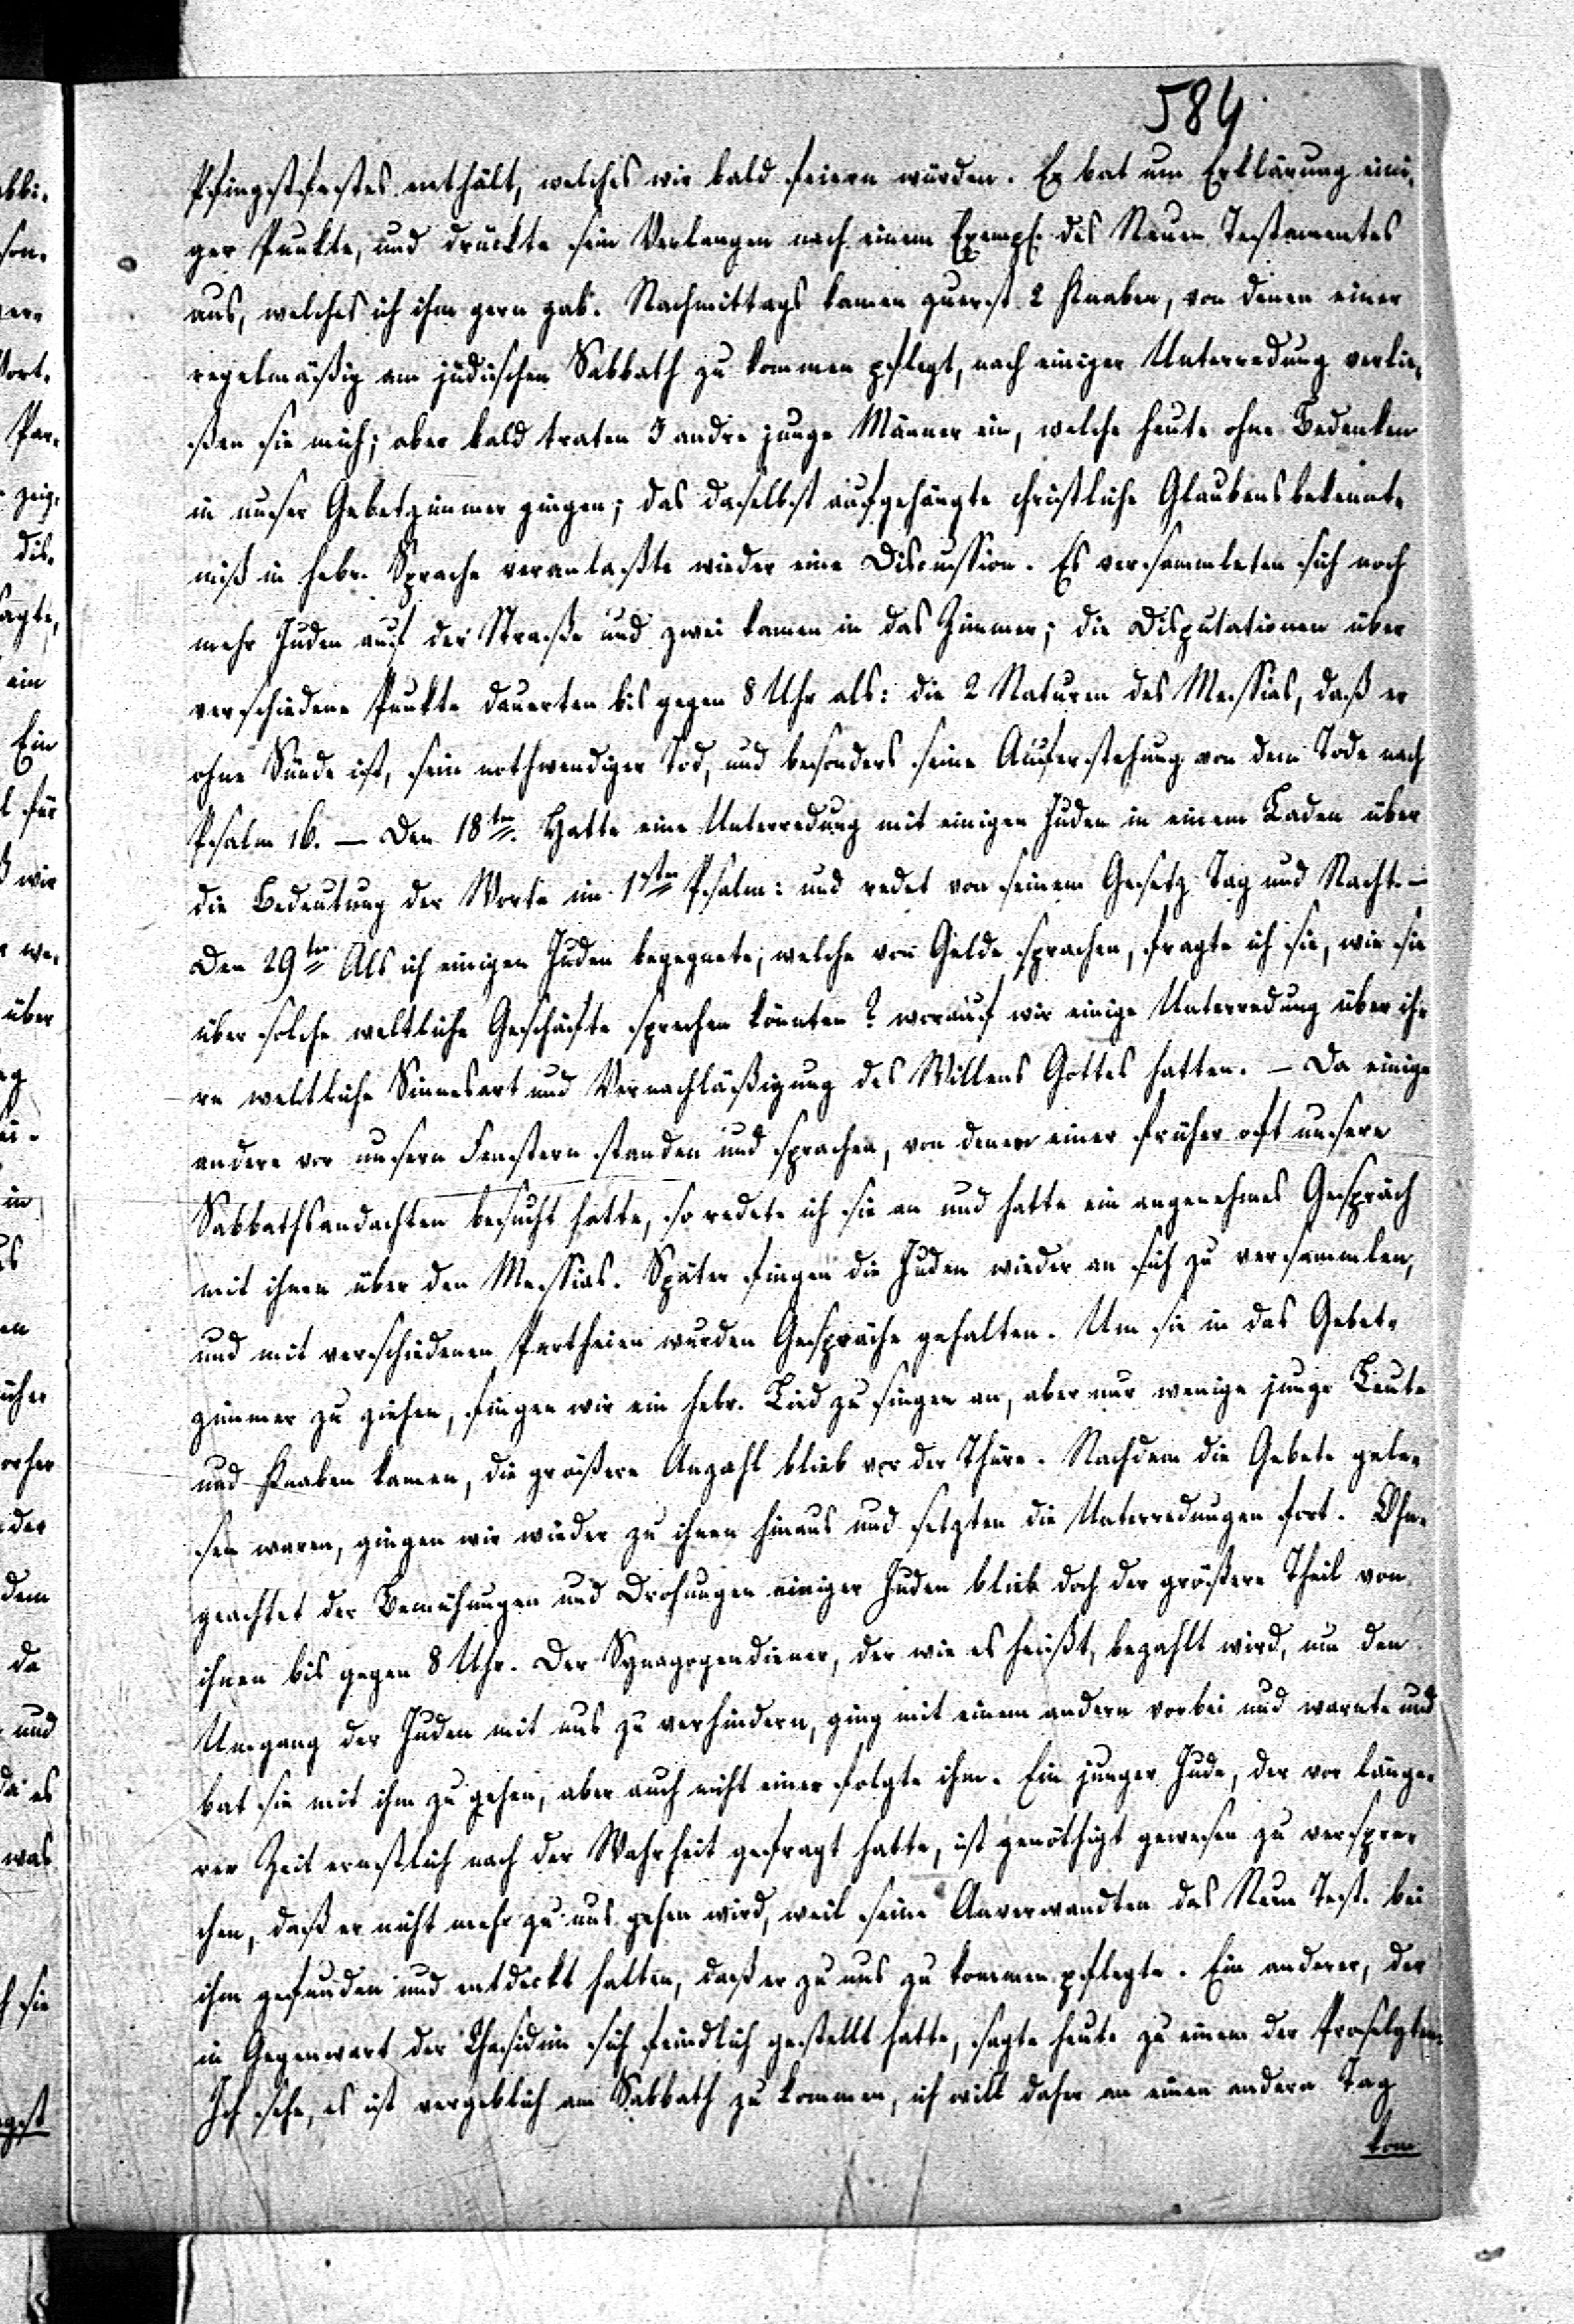 584
Pfingstfestes enthält, welches wir bald feiern würden. Er bat um Erklärung eini-
ger Punkte, und drückte sein Verlangen nach einem Exempl. des Neuen Testamentes
aus, welches ich ihm gern gab. Nachmittags kamen zuerst 2 Knaben, von denen einer
regelmäßig am jüdischen Sabbath zu kommen pflegt, nach einiger Unterredung verlie-
ßen sie mich; aber bald traten 3 andre junge Männer ein, welche heute ohne Bedenken
in unser Gebetzimmer gingen; das daselbst aufgehängte christliche Glaubensbekennt-
niß in hebr. Sprache veranlaßte wieder eine Discussion. Es versammleten sich noch
mehr Juden auf der Straße und zwei kamen in das Zimmer; die Disputationen über
verschiedene Punkte dauerten bis gegen 8 Uhr als: die 2 Naturen des Messias, daß er
ohne Sünde ist, sein nothwendiger Tod, und besonders seine Auferstehung von dem Tode nach
Psalm 16. — Den 18ten. Hatte eine Unterredung mit einigen Juden in einem Laden über
die Bedeutung der Worte im 1sten Psalm: und redet von seinem Gesetz Tag und Nacht. —
Den 29ten Als ich einigen Juden begegnete, welche von Gelde sprachen, fragte ich sie, wie sie
über solche weltliche Geschäfte sprechen könnten? worauf wir einige Unterredung über ih-
re weltliche Sinnesart und Vernachläßigung des Willens Gottes hatten. — Da einige
andere vor unsern Fenstern standen und sprachen, von denen einer früher oft unsere
Sabbathsandachten besucht hatte, so redete ich sie an und hatte ein angenehmes Gespräch
mit ihnen über den Messias. Später fingen die Juden wieder an sich zu versammlen,
und mit verschiedenen Partheien wurden Gespräche gehalten. Um sie in das Gebet-
zimmer zu ziehen, fingen wir ein hebr. Lied zu singen an, aber nur wenige junge Leute
und Knaben kamen, die größere Anzahl blieb vor der Thüre. Nachdem die Gebete gele-
sen waren, gingen wir wieder zu ihnen hinaus und setzten die Unterredungen fort. Ohn-
geachtet der Bemühungen und Drohungen einiger Juden blieb doch der größere Theil von
ihnen bis gegen 8 Uhr. Der Synagogendiener, der wie es heißt, bezahlt wird, um den
Umgang der Juden mit uns zu verhindern, ging mit einem andern vorbei und warnte und
bat sie mit ihm zu gehen, aber auch nicht einer folgte ihm. Ein junger Jude, der vor länge-
rer Zeit ernstlich nach der Wahrheit gefragt hatte, ist genöthigt gewesen zu verspre-
chen, daß er nicht mehr zu uns gehen wird, weil seine Anverwandten das Neue Test. bei
ihm gefunden und entdeckt hatten, daß er zu uns zu kommen pflegte. Ein anderer, der
in Gegenwart der Chasidim sich feindlich gestellt hatte, sagte heute zu einem der Proselyten:
Ich sehe, es ist vergeblich am Sabbath zu kommen, ich will daher an einem andern Tag
kom